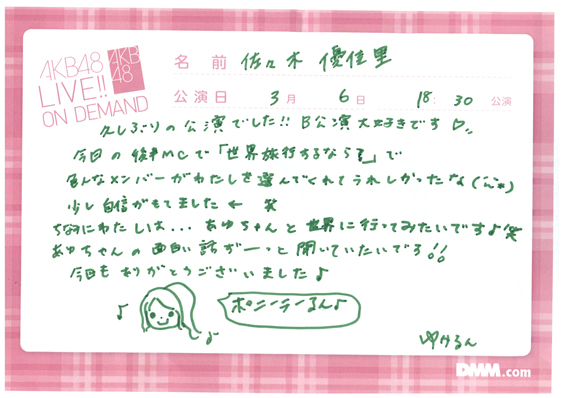 AKB48
LIVE!!
ON DEMAND
AKB
48
名前 佐々木 優佳里
公演日 3月 6日 18:30 公演
久しぶりの公演でした!! B公演大好きです♡
今日の後半MCで「世界旅行するなら?」で
色んなメンバーがわたしを選んでくれてうれしかったな
少し自信がもてました← 笑
ちなみにわたしは... あゆちゃんと世界に行ってみたいです♪笑
あゆちゃんの面白い話ずーっと聞いていたいでる!!
今日もありがとうございました♪
ポニーテーるん♪
ゆけるん
DMM.com